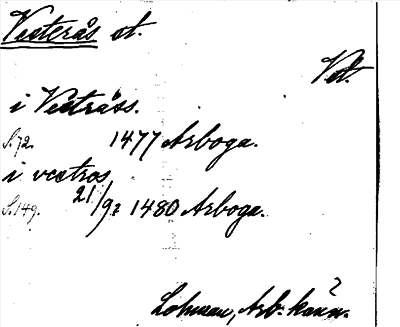 Vesterås st.
Vstl.
i Vestråss.
S. 72. 1477 Arboga.
i vestros
S. 149. 21/9? 1480 Arboga.
Lohman, Arb: